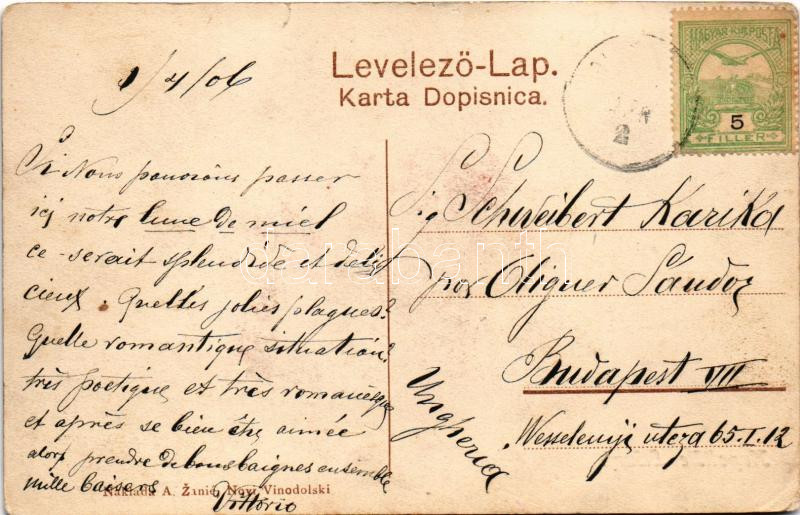 1/4/06
Levelező-Lap.
Karta Dopisnica.
MAGYAR KIR. POSTA
5
FILLER
2
Si Nous pouvions passer
ici notre lune de miel
ce-serait splendide et deli
cieux. Quelles jolies plagues?
Quelle romantique situation?
très poetique et très romanesque
et après se bien être aimée
alors prendre de bons baignes ensemble
mille baisers
Vittorio
Sig Schweibert Karika
por Oligner Sandor
Budapest VII
Wesselenyi utcza 65. I. 12
Ungheria
Naklada A. Žanić, Novi Vinodolski
darabanth